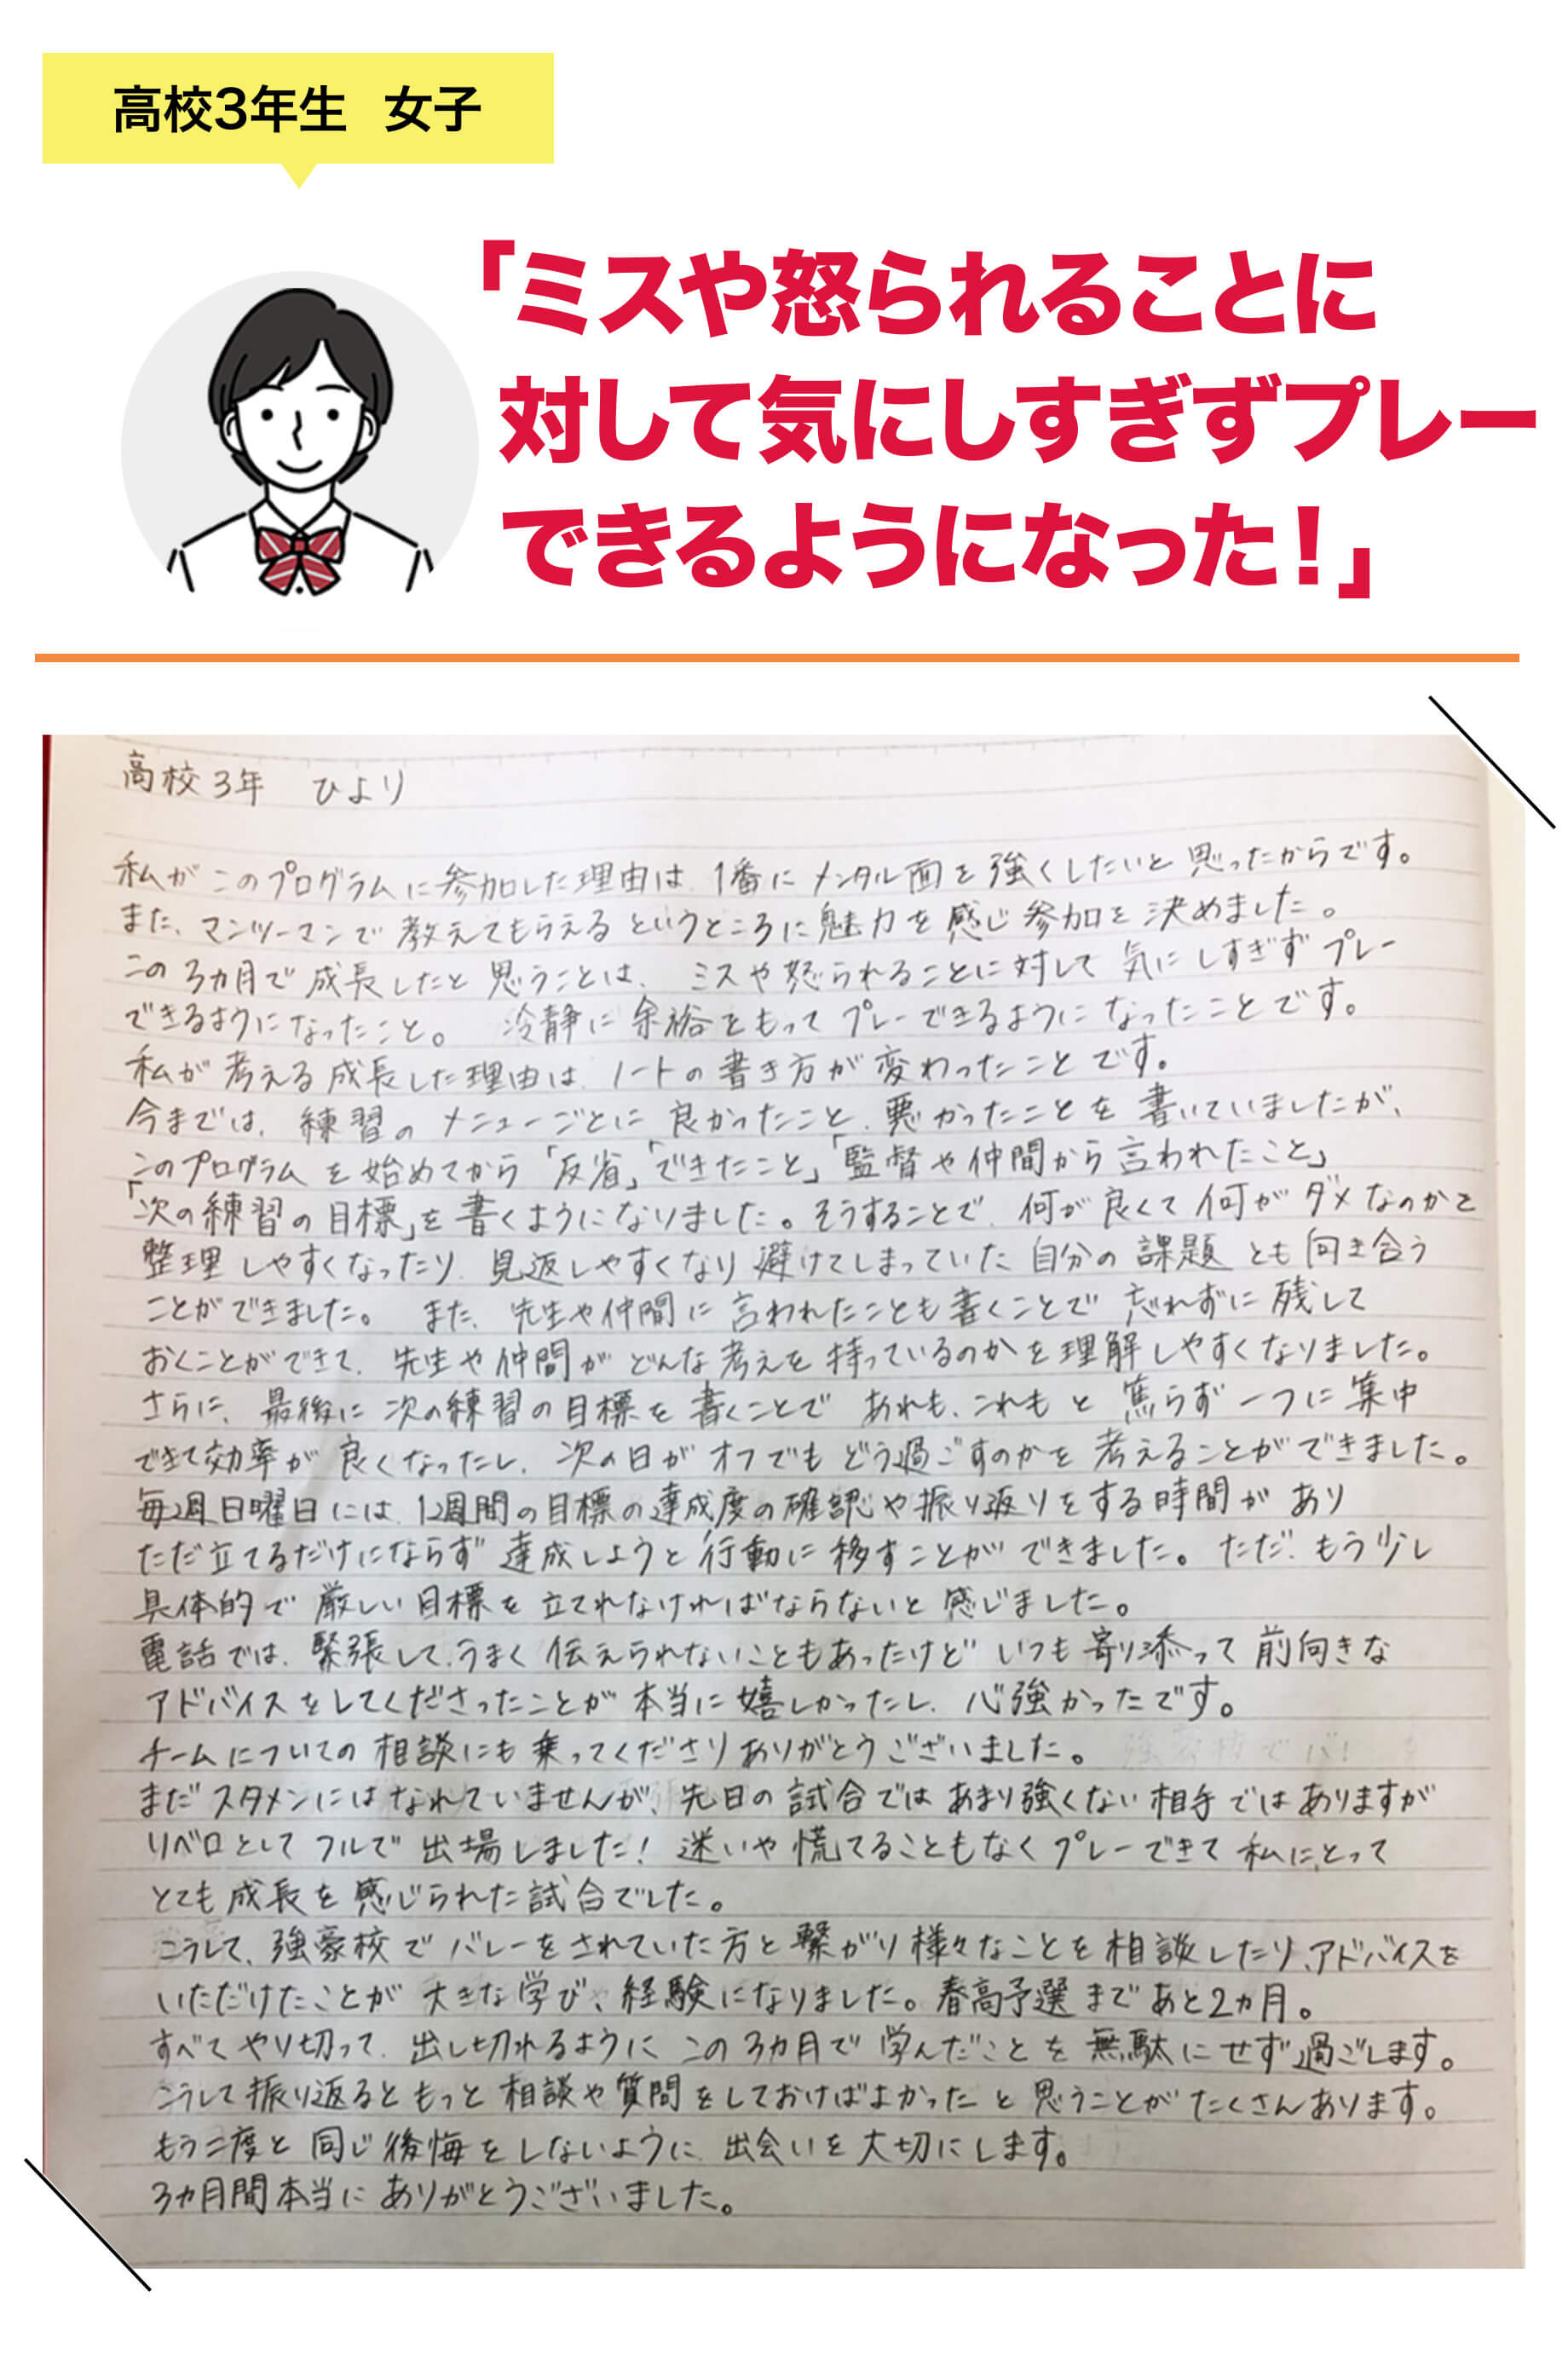 高校3年生 女子
「ミスや怒られることに
対して気にしすぎずプレー
できるようになった！」
高校3年 ひより
私がこのプログラムに参加した理由は、1番にメンタル面を強くしたいと思ったからです。
また、マンツーマンで教えてもらえるというところに魅力を感じ参加を決めました。
この3カ月で成長したと思うことは、ミスや怒られることに対して気にしすぎずプレー
できるようになったこと。 冷静に余裕をもってプレーできるようになったことです。
私が考える成長した理由は、ノートの書き方が変わったことです。
今までは、練習のメニューごとに良かったこと、悪かったことを書いていましたが、
このプログラムを始めてから「反省」「できたこと」「監督や仲間から言われたこと」
「次の練習の目標」を書くようになりました。そうすることで、何が良くて何がダメなのかを
整理しやすくなったり、見返しやすくなり避けてしまっていた自分の課題とも向き合う
ことができました。 また、先生や仲間に言われたことも書くことで忘れずに残して
おくことができて、先生や仲間がどんな考えを持っているのかを理解しやすくなりました。
さらに、最後に次の練習の目標を書くことであれも、これもと焦らず一つに集中
できて効率が良くなったし、次の日がオフでもどう過ごすのかを考えることができました。
毎週日曜日には、1週間の目標の達成度の確認や振り返りをする時間があり
ただ立てるだけにならず達成しようと行動に移すことができました。ただ、もう少し
具体的で厳しい目標を立てれなければならないと感じました。
電話では、緊張して、うまく伝えられないこともあったけどいつも寄り添って前向きな
アドバイスをしてくださったことが本当に嬉しかったし、心強かったです。
チームについての相談にも乗ってくださりありがとうございました。
まだスタメンにはなれていませんが、先日の試合ではあまり強くない相手ではありますが
リベロとしてフルで出場しました！迷いや慌てることもなくプレーできて私にとって
とても成長を感じられた試合でした。
こうして、強豪校でバレーをされていた方と繋がり様々なことを相談したり、アドバイスを
いただけたことが大きな学び、経験になりました。春高予選まであと2カ月。
すべてやり切って、出し切れるようにこの3カ月で学んだことを無駄にせず過ごします。
こうして振り返るともっと相談や質問をしておけばよかったと思うことがたくさんあります。
もう二度と同じ後悔をしないように、出会いを大切にします。
3カ月間本当にありがとうございました。